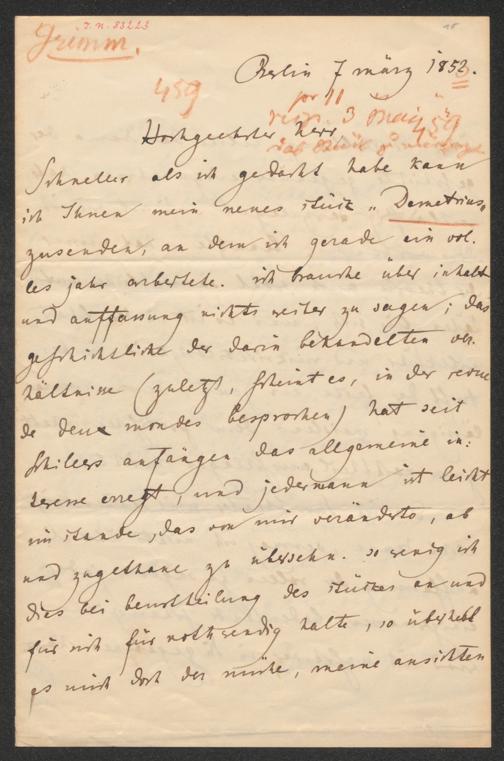 J.N. 83223
Grimm.
Berlin 7 märz 1853.
459
Hochgeehrter Herr,
Schneller als ich gedacht habe kann
ich Ihnen mein neues stück „Demetrius"
zusenden, an dem ich gerade ein vol-
les jahr arbeitete. ich brauche über inhalt
und auffassung nichts weiter zu sagen; das
geschichtliche der darin behandelten ver-
hältnisse (zuletzt, scheint es, in der revue
de deux mondes besprochen) hat seit
Schillers anfängen das allgemeine in-
teresse erregt, und jedermann ist leicht
im stande, das von mir veränderte, ab
und zugethane zu übersehn. so wenig ich
dies bei beurtheilung des stückes an und
für sich für nothwendig halte, so überhebt
es mich doch der mühe, meine ansichten